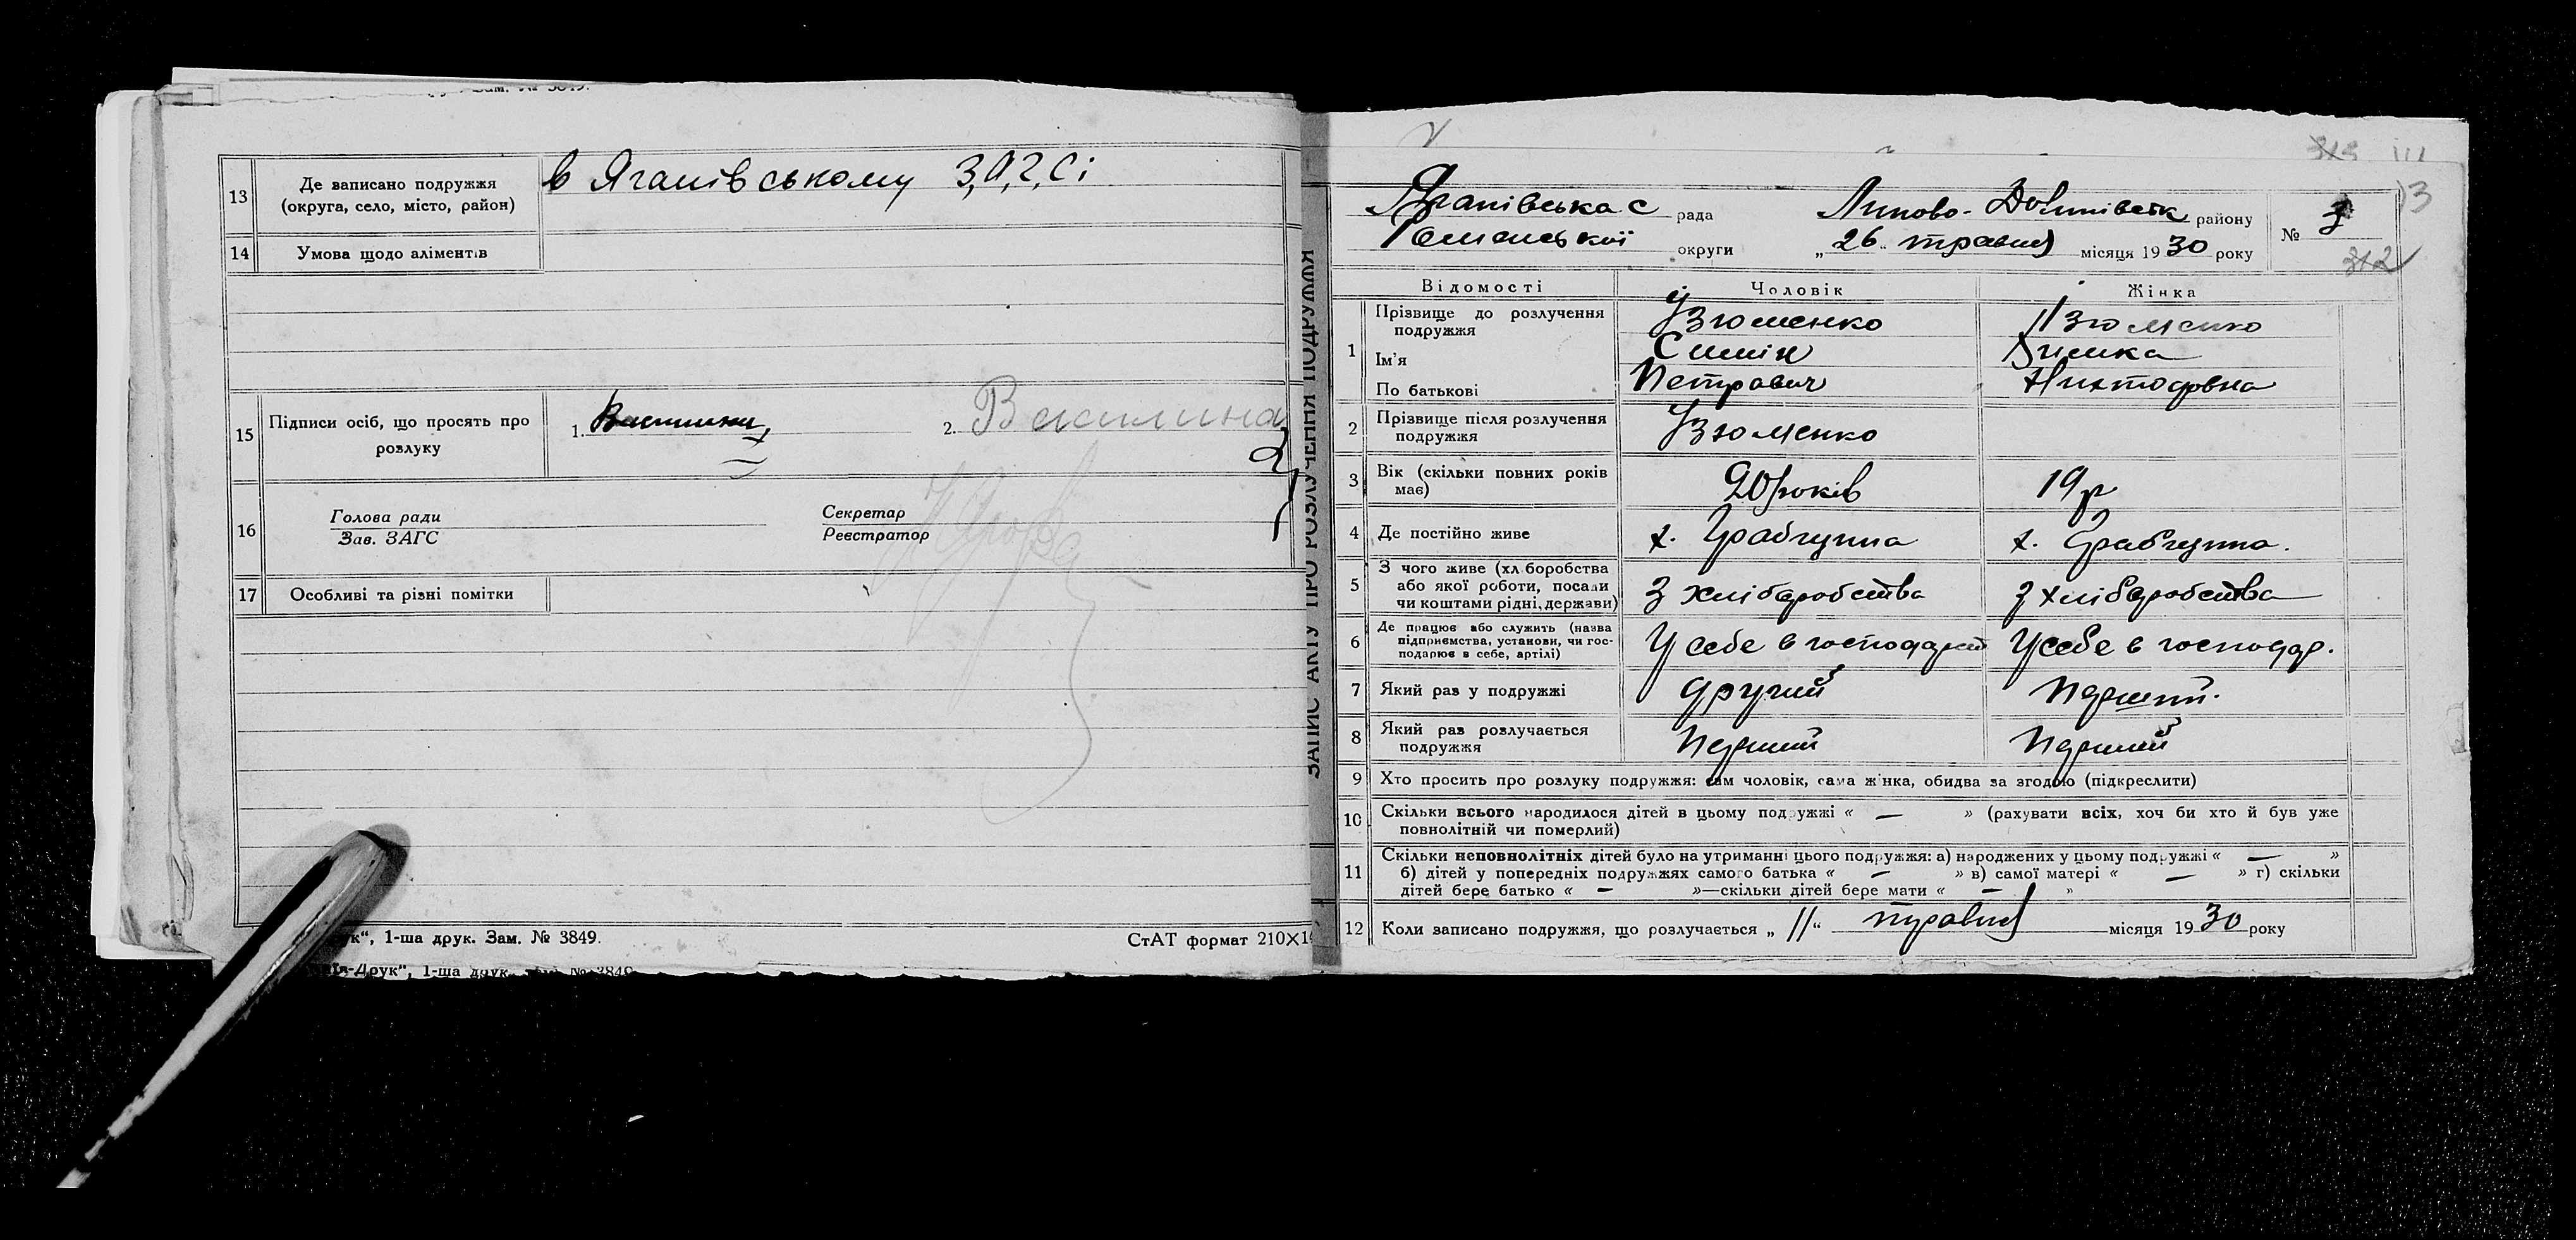 13 Де записано подружжя (округа, село, місто, район) в Яганівському З,А,Г,Сі
14 Умова щодо аліментів
15 Підписи осіб, що просять про розлуку 1. 2. Василина
16 Голова ради
Зав. ЗАГС
Секретар
Реєстратор
17 Особливі та різні помітки
1-ша друк. Зам. № 3849.
СтАТ формат 210×1
Друк", 1-ша друк. № 3849
ЗАПИС АКТУ ПРО РОЗЛУЧЕННЯ ПОДРУЖЖЯ
рада Липово- району
№ 3
Роменської округи „26„ травня місяця 1930 року
312
Відомості Чоловік Жінка
1 Прізвище до розлучення подружжя Ізюменко Ізюменко
Ім'я Симін
По батькові Петрович
2 Прізвище після розлучення подружжя Ізюменко
3 Вік (скільки повних років має) 20 років 19 р
4 Де постійно живе х. Грабщина х. Грабщина.
5 З чого живе (хліборобства або якої роботи, посади чи коштами рідні, держави) З хліборобства З хліборобства
6 Де працює або служить (назва підприємства, установи, чи господарює в себе, артілі) У себе в господарст У себе в господар.
7 Який раз у подружжі Другий Перший.
8 Який раз розлучається подружжя Перший Перший
9 Хто просить про розлуку подружжя: сам чоловік, сама жінка, обидва за згодою (підкреслити)
10 Скільки всього народилося дітей в цьому подружжі « — » (рахувати всіх, хоч би хто й був уже
повнолітній чи померлий)
11 Скільки неповнолітніх дітей було на утриманні цього подружжя: а) народжених у цьому подружжі « — »
б) дітей у попередніх подружжях самого батька « — » в) самої матері « — » г) скільки
дітей бере батько « — »—скільки дітей бере мати « — »
12 Коли записано подружжя, що розлучається „ 11 “ травня місяця 1930 року